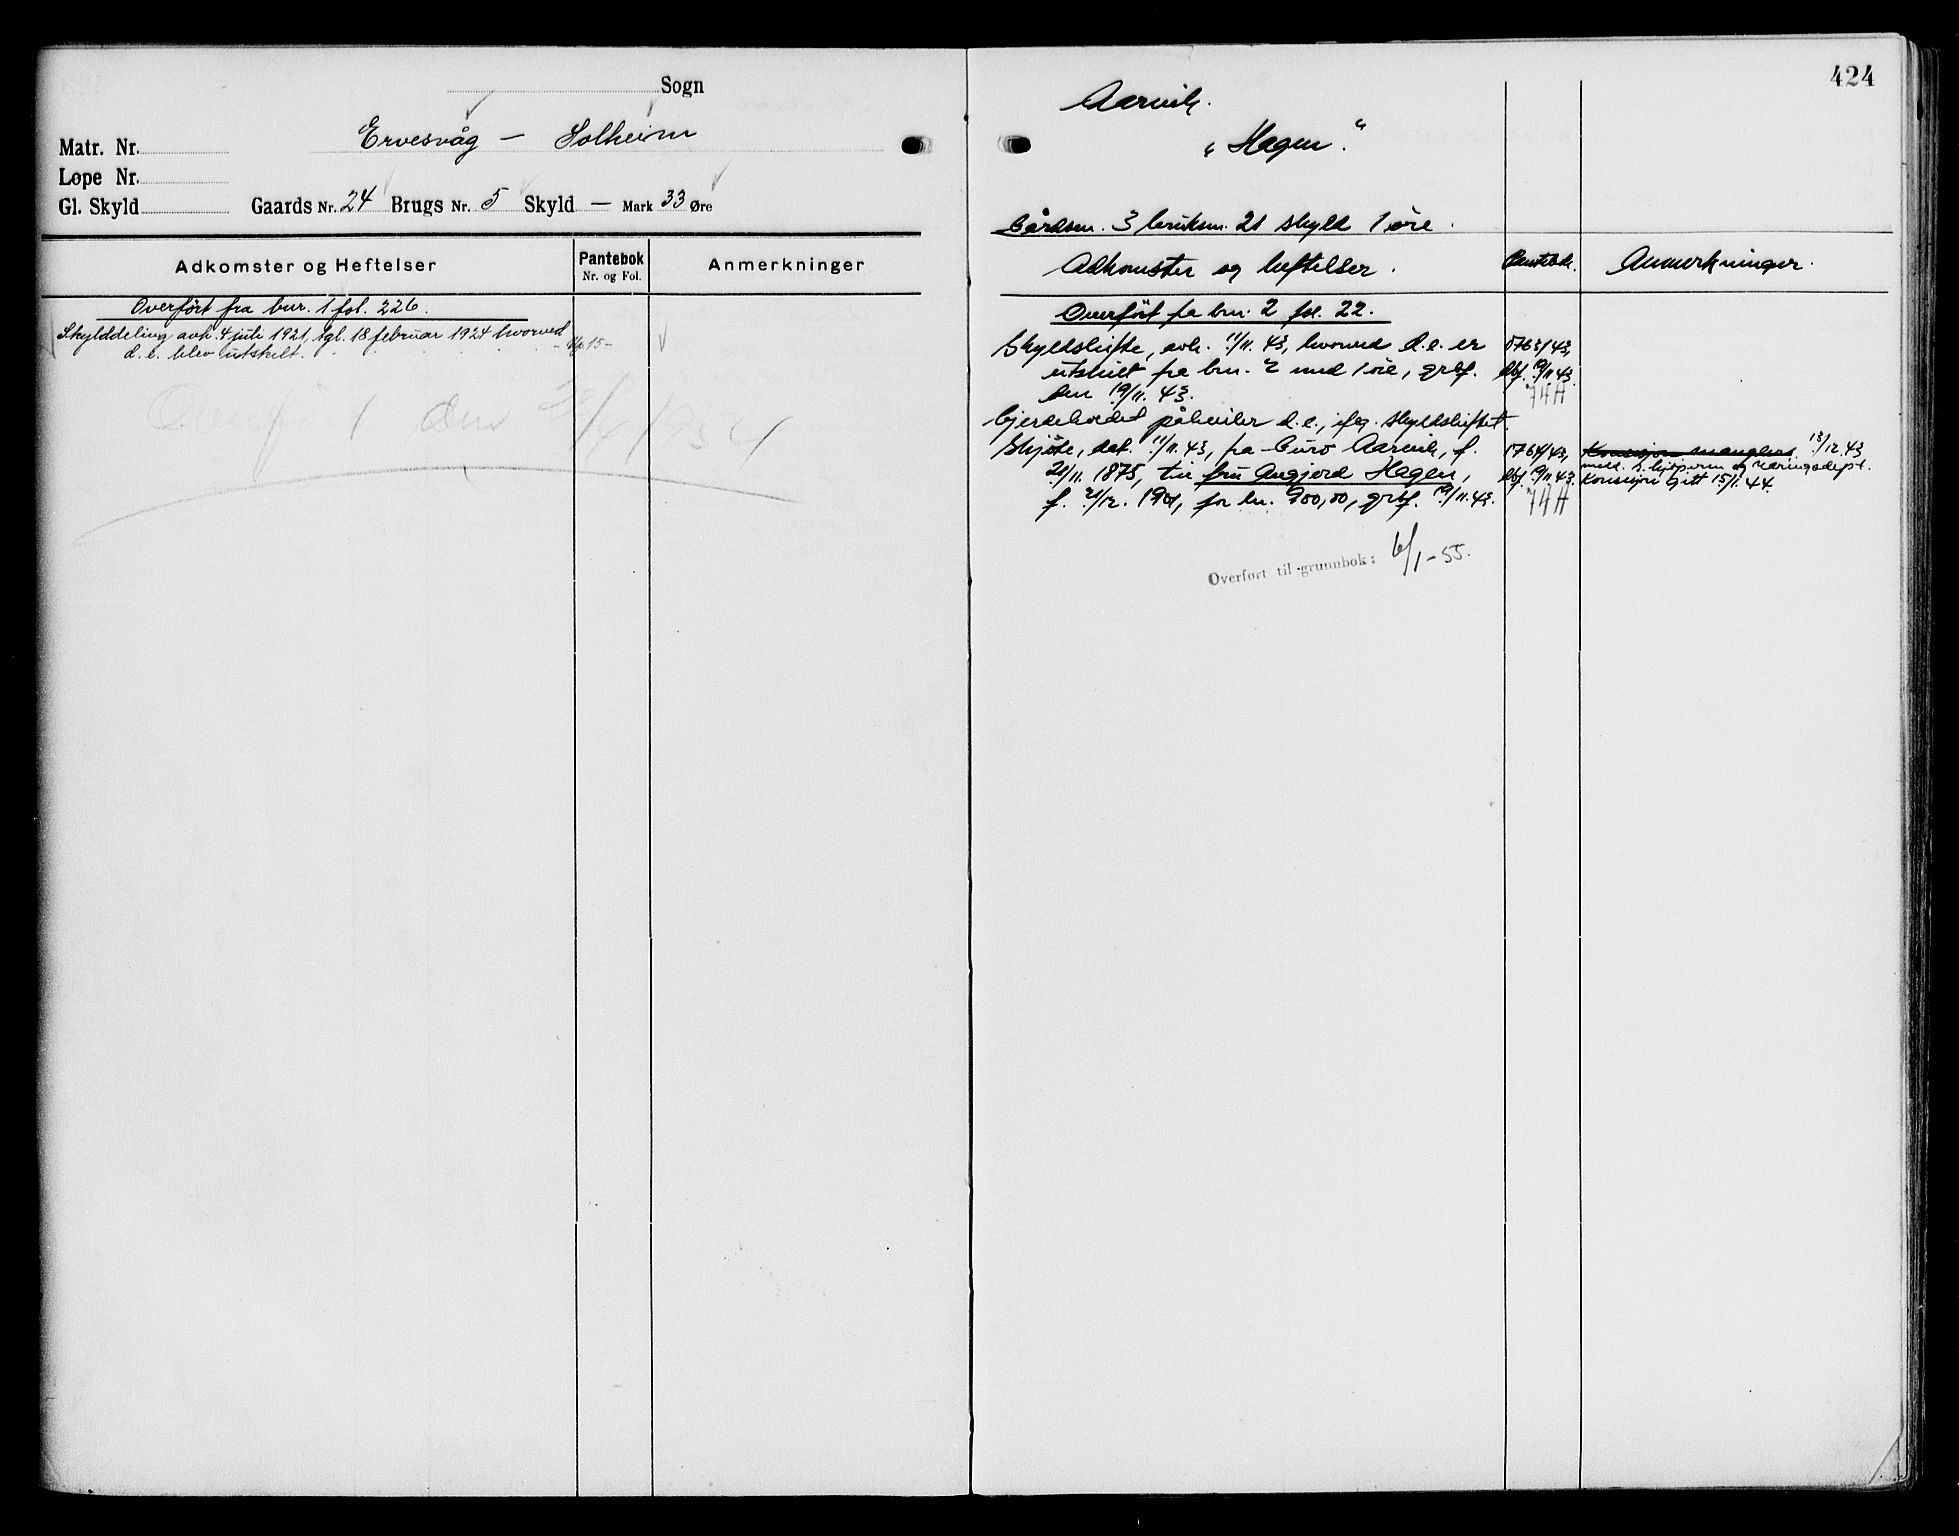 Sogn
Ervesvåg — Solheim
Matr. Nr.
Lope Nr.
Gl. Skyld Gaards Nr. 24 Brugs Nr. 5 Skyld — Mark 33 Øre
Adkomster og Heftelser Pantebok Nr. og Fol. Anmerkninger
Overført fra bnr. 1 fol. 226.
Skylddeling avh. 4 juli 1921, tgl. 18 februar 1924 hvorved
d. e. blev utskilt.
424
Aarvik.
"Hagen".
Gårdsnr. 3 bruksnr. 21 skyld 1 øre.
Adkomster og heftelser. Pantebok. Anmerkninger.
Overført fra bnr. 2 fol. 22.
Skyldskifte, avh. 11/11. 43, hvorved d.e. er 1763/43,
utskilt fra bnr. 2 med 1 øre, grbf. dbf. 19/11 43.
den 19/11. 43. 74A
Gjerdeholdet påhviler d.e., iflg. skyldskiftet.
Skjøte, dat. 11/11. 43, fra Guro Aarvik, f. 1764/43, Konsesjon mangler. 13/12.43
20/11. 1875, til fru Angjerd Hagen, dbf. 19/11 43. meld. t. lignv. og næringsdept.
Konsesjon gitt 15/1. 44.
f. 21/12. 1901, for kr. 900,00, grbf. 19/11. 43. 74A
Overført til grunnbok: 6/1-55.